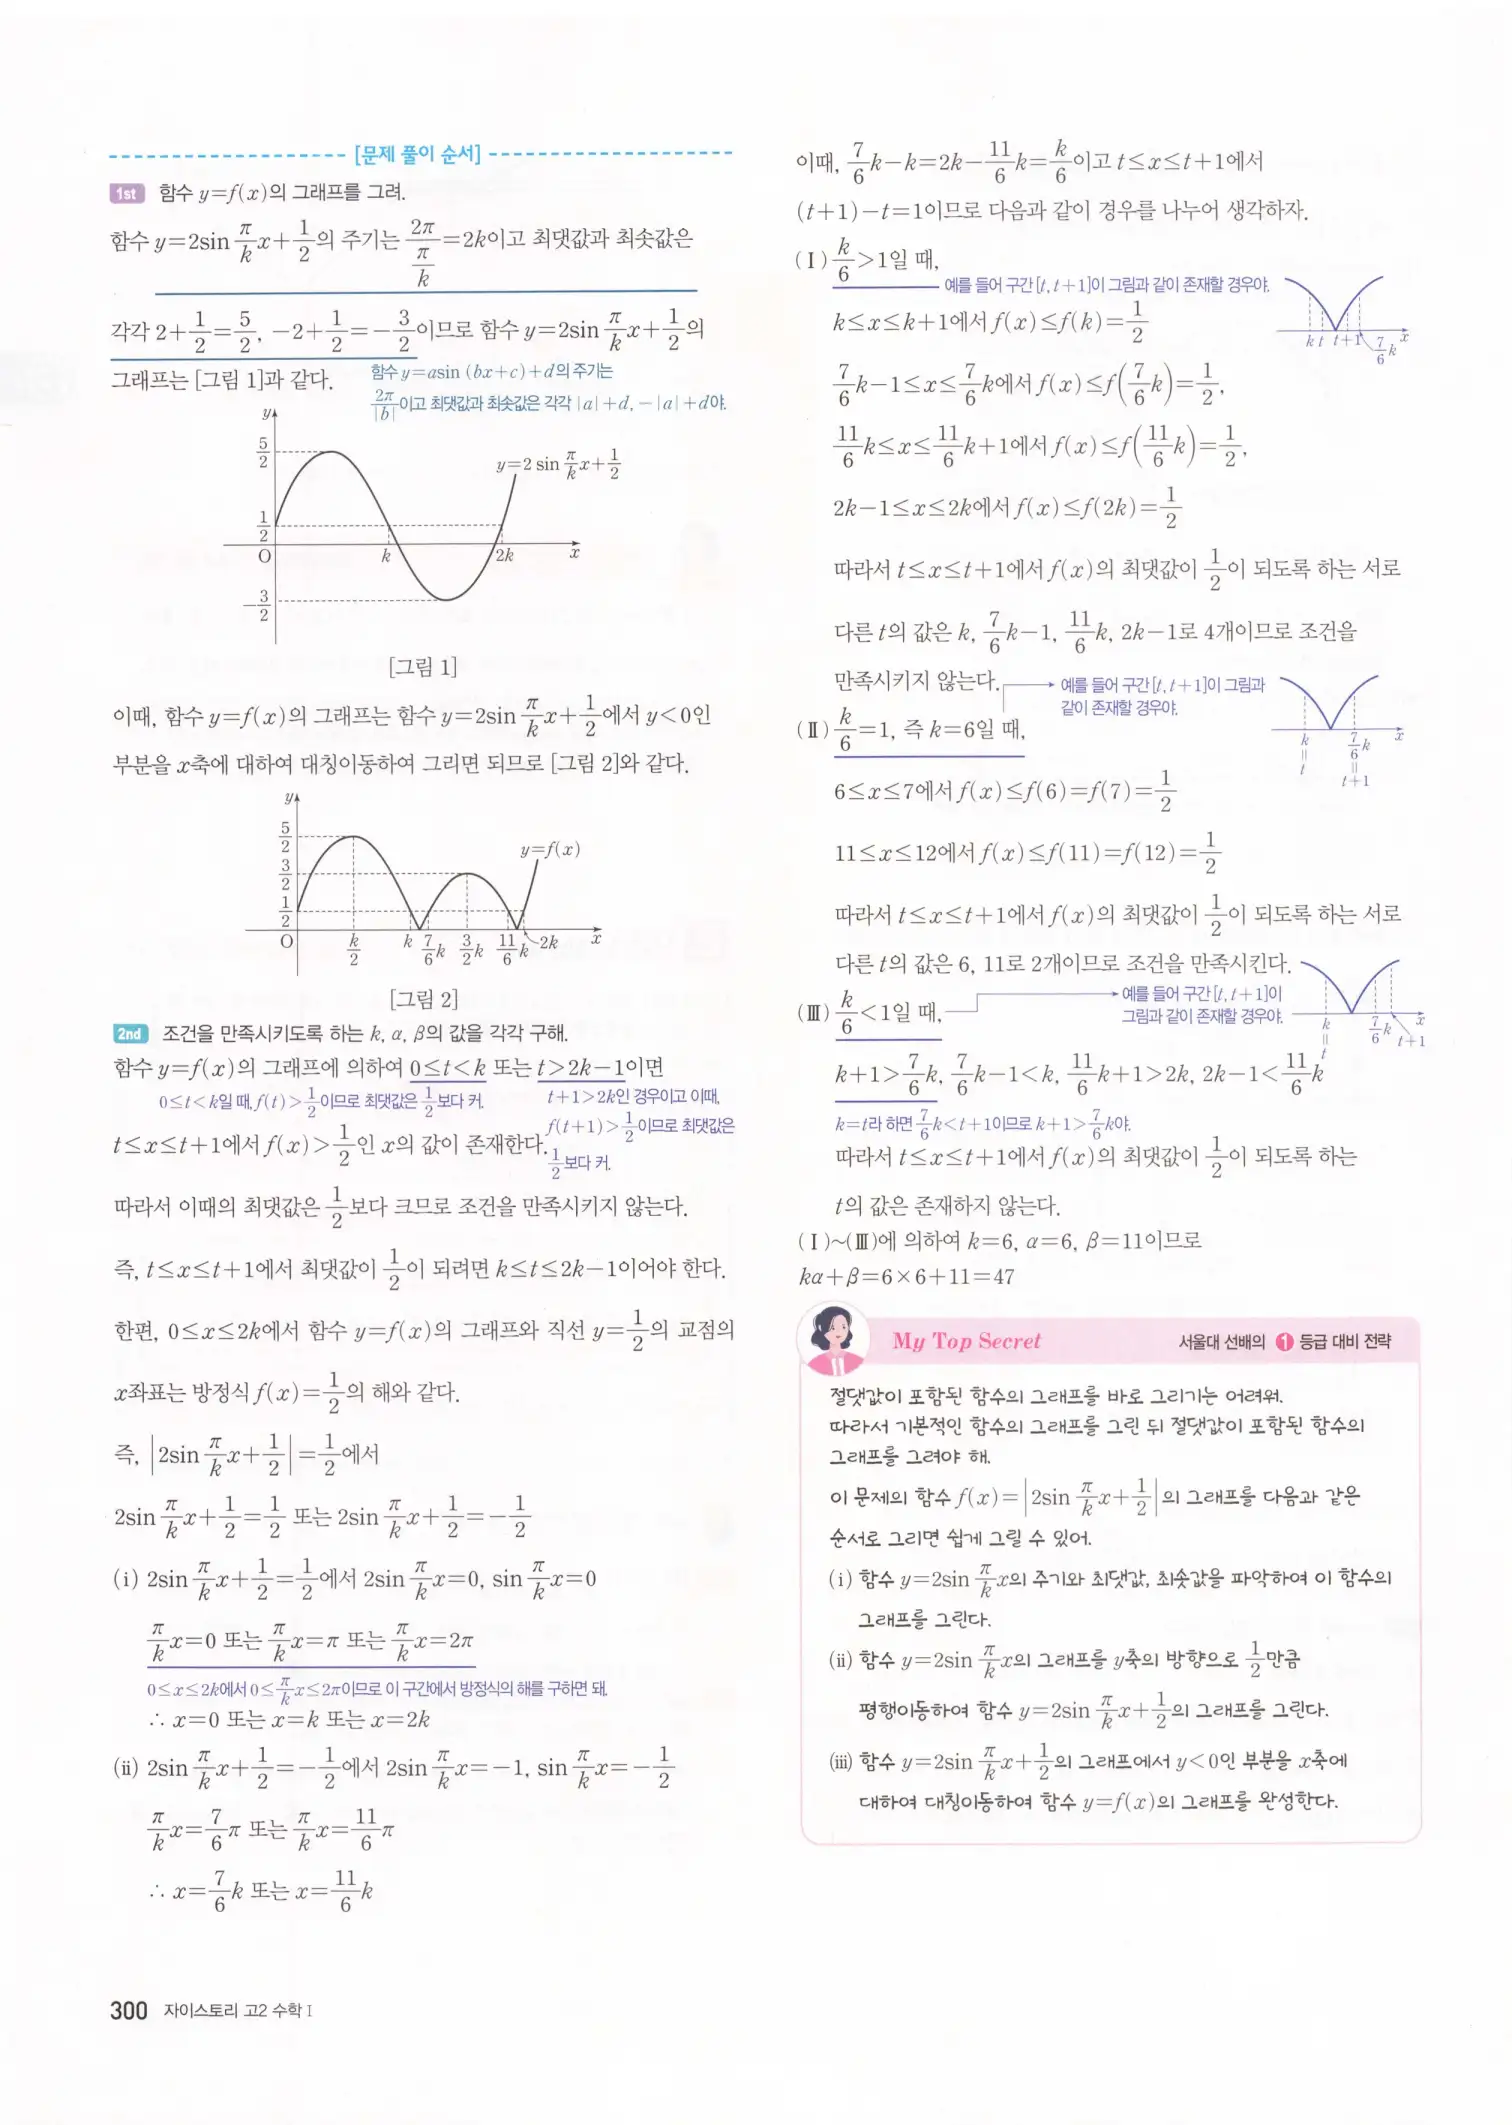 [문제 풀이 순서]
1st 함수 y=f(x)의 그래프를 그려.
함수 y=2sin π/k x+1/2의 주기는 2π/(π/k)=2k이고 최댓값과 최솟값은
각각 2+1/2=5/2, -2+1/2=-3/2이므로 함수 y=2sin π/k x+1/2의
그래프는 [그림 1]과 같다.
함수 y=asin (bx+c)+d의 주기는
2π/|b|이고 최댓값과 최솟값은 각각 |a|+d, -|a|+d야.
y
5/2
y=2 sin π/k x+1/2
1/2
O k 2k x
-3/2
[그림 1]
이때, 함수 y=f(x)의 그래프는 함수 y=2sin π/k x+1/2에서 y<0인
부분을 x축에 대하여 대칭이동하여 그리면 되므로 [그림 2]와 같다.
y
5/2
y=f(x)
3/2
1/2
O k/2 k 7/6 k 3/2 k 11/6 k 2k x
[그림 2]
2nd 조건을 만족시키도록 하는 k, α, β의 값을 각각 구해.
함수 y=f(x)의 그래프에 의하여 0≤t<k 또는 t>2k-1이면
0≤t<k일 때, f(t)>1/2이므로 최댓값은 1/2보다 커.
t+1>2k인 경우이고 이때,
f(t+1)>1/2이므로 최댓값은
1/2보다 커.
t≤x≤t+1에서 f(x)>1/2인 x의 값이 존재한다.
따라서 이때의 최댓값은 1/2보다 크므로 조건을 만족시키지 않는다.
즉, t≤x≤t+1에서 최댓값이 1/2이 되려면 k≤t≤2k-1이어야 한다.
한편, 0≤x≤2k에서 함수 y=f(x)의 그래프와 직선 y=1/2의 교점의
x좌표는 방정식 f(x)=1/2의 해와 같다.
즉, |2sin π/k x+1/2|=1/2에서
2sin π/k x+1/2=1/2 또는 2sin π/k x+1/2=-1/2
(i) 2sin π/k x+1/2=1/2에서 2sin π/k x=0, sin π/k x=0
π/k x=0 또는 π/k x=π 또는 π/k x=2π
0≤x≤2k에서 0≤π/k x≤2π이므로 이 구간에서 방정식의 해를 구하면 돼.
∴ x=0 또는 x=k 또는 x=2k
(ii) 2sin π/k x+1/2=-1/2에서 2sin π/k x=-1, sin π/k x=-1/2
π/k x=7/6 π 또는 π/k x=11/6 π
∴ x=7/6 k 또는 x=11/6 k
300 자이스토리 고2 수학 I
이때, 7/6 k-k=2k-11/6 k=k/6이고 t≤x≤t+1에서
(t+1)-t=1이므로 다음과 같이 경우를 나누어 생각하자.
(Ⅰ) k/6>1일 때,
예를 들어 구간 [t, t+1]이 그림과 같이 존재할 경우야.
k t t+1 7/6 k x
k≤x≤k+1에서 f(x)≤f(k)=1/2
7/6 k-1≤x≤7/6 k에서 f(x)≤f(7/6 k)=1/2,
11/6 k≤x≤11/6 k+1에서 f(x)≤f(11/6 k)=1/2,
2k-1≤x≤2k에서 f(x)≤f(2k)=1/2
따라서 t≤x≤t+1에서 f(x)의 최댓값이 1/2이 되도록 하는 서로
다른 t의 값은 k, 7/6 k-1, 11/6 k, 2k-1로 4개이므로 조건을
만족시키지 않는다.
예를 들어 구간 [t, t+1]이 그림과
같이 존재할 경우야.
(Ⅱ) k/6=1, 즉 k=6일 때,
k = t 7/6 k = t+1 x
6≤x≤7에서 f(x)≤f(6)=f(7)=1/2
11≤x≤12에서 f(x)≤f(11)=f(12)=1/2
따라서 t≤x≤t+1에서 f(x)의 최댓값이 1/2이 되도록 하는 서로
다른 t의 값은 6, 11로 2개이므로 조건을 만족시킨다.
(Ⅲ) k/6<1일 때,
예를 들어 구간 [t, t+1]이
그림과 같이 존재할 경우야.
k = t 7/6 k t+1 x
k+1>7/6 k, 7/6 k-1<k, 11/6 k+1>2k, 2k-1<11/6 k
k=t라 하면 7/6 k<t+1이므로 k+1>7/6 k야.
따라서 t≤x≤t+1에서 f(x)의 최댓값이 1/2이 되도록 하는
t의 값은 존재하지 않는다.
(Ⅰ)~(Ⅲ)에 의하여 k=6, α=6, β=11이므로
kα+β=6×6+11=47
My Top Secret 서울대 선배의 1 등급 대비 전략
절댓값이 포함된 함수의 그래프를 바로 그리기는 어려워.
따라서 기본적인 함수의 그래프를 그린 뒤 절댓값이 포함된 함수의
그래프를 그려야 해.
이 문제의 함수 f(x)=|2sin π/k x+1/2|의 그래프를 다음과 같은
순서로 그리면 쉽게 그릴 수 있어.
(i) 함수 y=2sin π/k x의 주기와 최댓값, 최솟값을 파악하여 이 함수의
그래프를 그린다.
(ii) 함수 y=2sin π/k x의 그래프를 y축의 방향으로 1/2만큼
평행이동하여 함수 y=2sin π/k x+1/2의 그래프를 그린다.
(iii) 함수 y=2sin π/k x+1/2의 그래프에서 y<0인 부분을 x축에
대하여 대칭이동하여 함수 y=f(x)의 그래프를 완성한다.